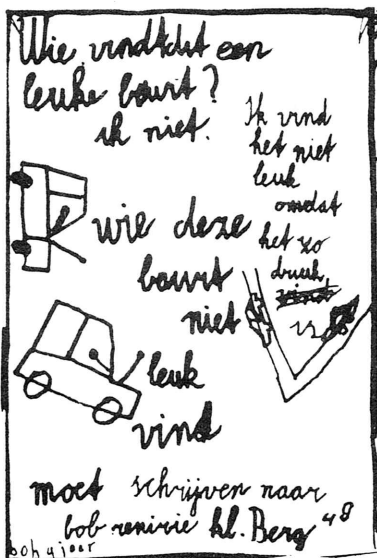 Wie vindt dit een
leuke bourt?
ik niet.
Ik vind
het niet
leuk
omdat
het zo
druk
is
wie deze
bourt
niet
leuk
vind
moet schrijven naar
bob renirie kl. Berg 48
bob 9 jaar